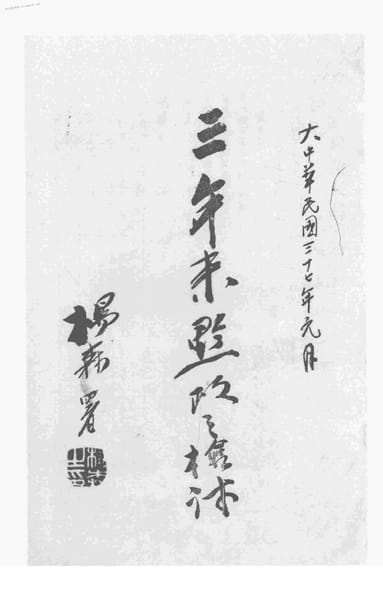 大中華民國三十七年元月
三年来黔政之檢討
楊森署